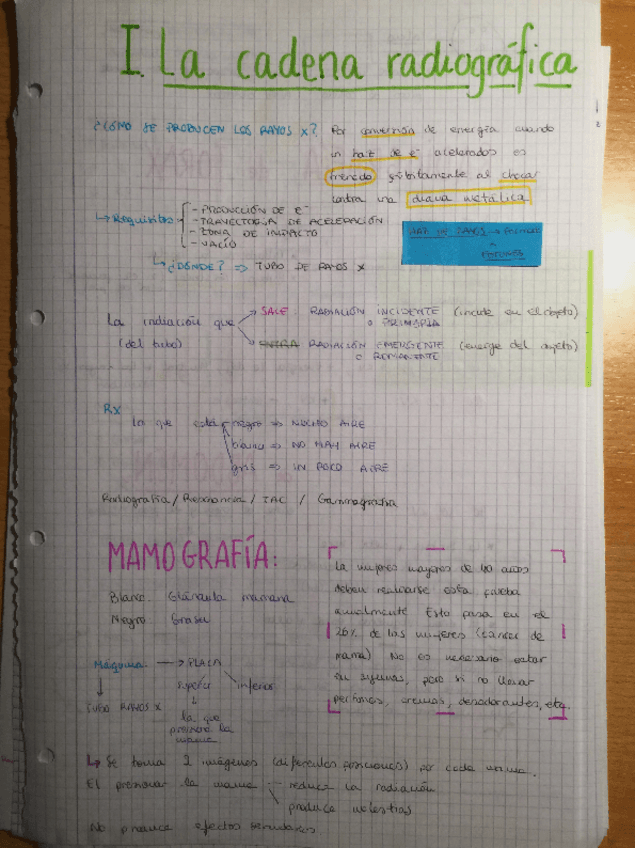 I. La cadena radiográfica
¿CÓMO SE PRODUCEN LOS RAYOS X? Por conversión de energía cuando
un haz de e⁻ acelerados es
frenado súbitamente al chocar
contra una diana metálica
↳ Requisitos - PRODUCCIÓN DE E⁻
- TRAYECTORIA DE ACELERACIÓN
- ZONA DE IMPACTO
- VACÍO
HAZ DE RAYOS →
↳ ¿DÓNDE? ⇒ TUBO DE RAYOS X
La radiación que → SALE: RADIACIÓN INCIDENTE (incide en el objeto)
o PRIMARIA
(del tubo) → ENTRA RADIACIÓN EMERGENTE (emerge del objeto)
o REMANENTE
RX
lo que está negro ⇒ MUCHO AIRE
blanco ⇒ NO HAY AIRE
gris ⇒ UN POCO AIRE
Radiografía / Resonancia / TAC / Gammagrafía
MAMOGRAFÍA:
Blanco: Glándula mamaria
Negro: Grasa
La mujeres mayores de 40 años
deben realizarse esta prueba
anualmente Esto pasa en el
26% de las mujeres (cáncer de
mama) No es necesario estar
en ayunas, pero si no llevar
perfumes, cremas, desodorantes, etc.
Máquina: → PLACA
superior inferior
↓
TUBO RAYOS X
la que
presiona la
mama
↳ Se toma 2 imágenes (diferentes posiciones) por cada mama.
El presionar la mama - reduce la radiación
produce molestias
No produce efectos secundarios.